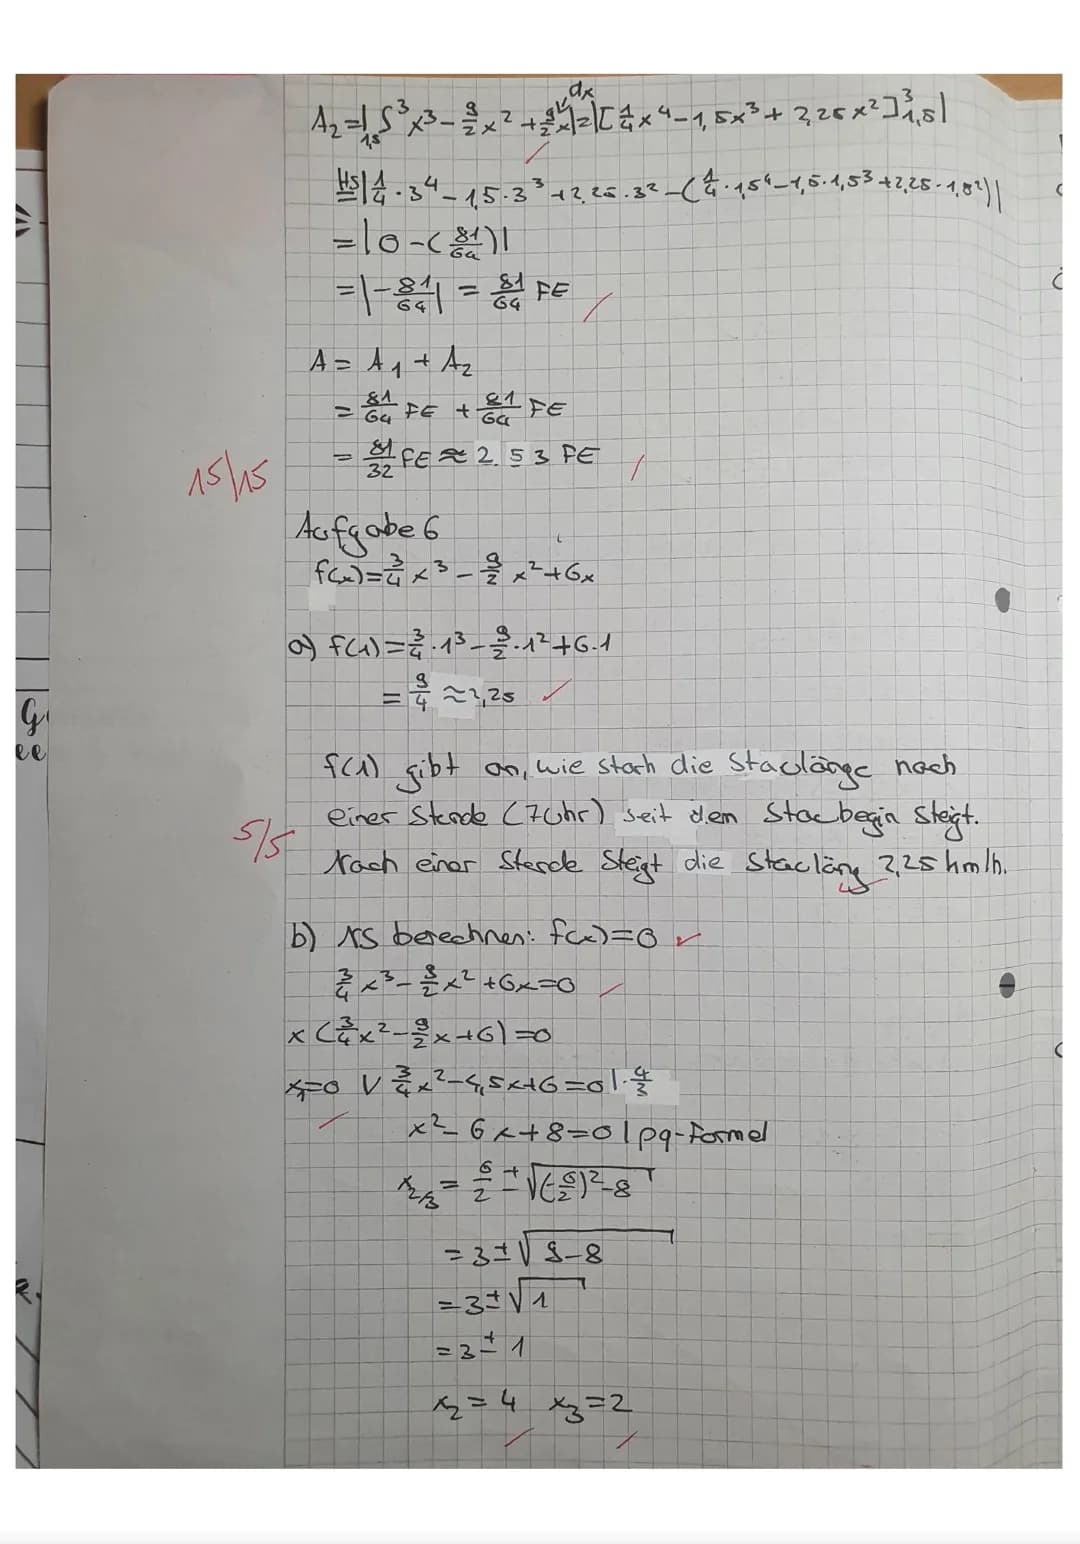 dx
A₂=|∫₁,₅³ x³ - 9/2 x² + 9/2 x|=|[1/4 x⁴ - 1,5x³ + 2,25x²]³₁,₅|
HS |1/4 · 3⁴ - 1,5 · 3³ + 2,25 · 3² - (1/4 · 1,5⁴ - 1,5 · 1,5³ + 2,25 · 1,5²)|
= |0 - (81/64)|
= |- 81/64| = 81/64 FE
A = A₁ + A₂
= 81/64 FE + 81/64 FE
= 81/32 FE ≈ 2.53 FE
15/15
Aufgabe 6
f(x) = 3/4 x³ - 9/2 x² + 6x
a) f(1) = 3/4 · 1³ - 9/2 · 1² + 6 · 1
= 9/4 ≈ 2,25
f(1) gibt an, wie stark die Staulänge nach
einer Stunde (7Uhr) seit dem Staubegin steigt.
5/5
Nach einer Stunde steigt die Stauläng 2,25 km/h.
b) NS berechnen: f(x) = 0
3/4 x³ - 9/2 x² + 6x = 0
x (3/4 x² - 9/2 x + 6) = 0
x₁ = 0 ∨ 3/4 x² - 4,5x + 6 = 0 | · 4/3
x² - 6x + 8 = 0 | pq-Formel
x₂/₃ = 6/2 ± √((-6/2)² - 8)
= 3 ± √(9 - 8)
= 3 ± √1
= 3 ± 1
x₂ = 4 x₃ = 2
G
ee